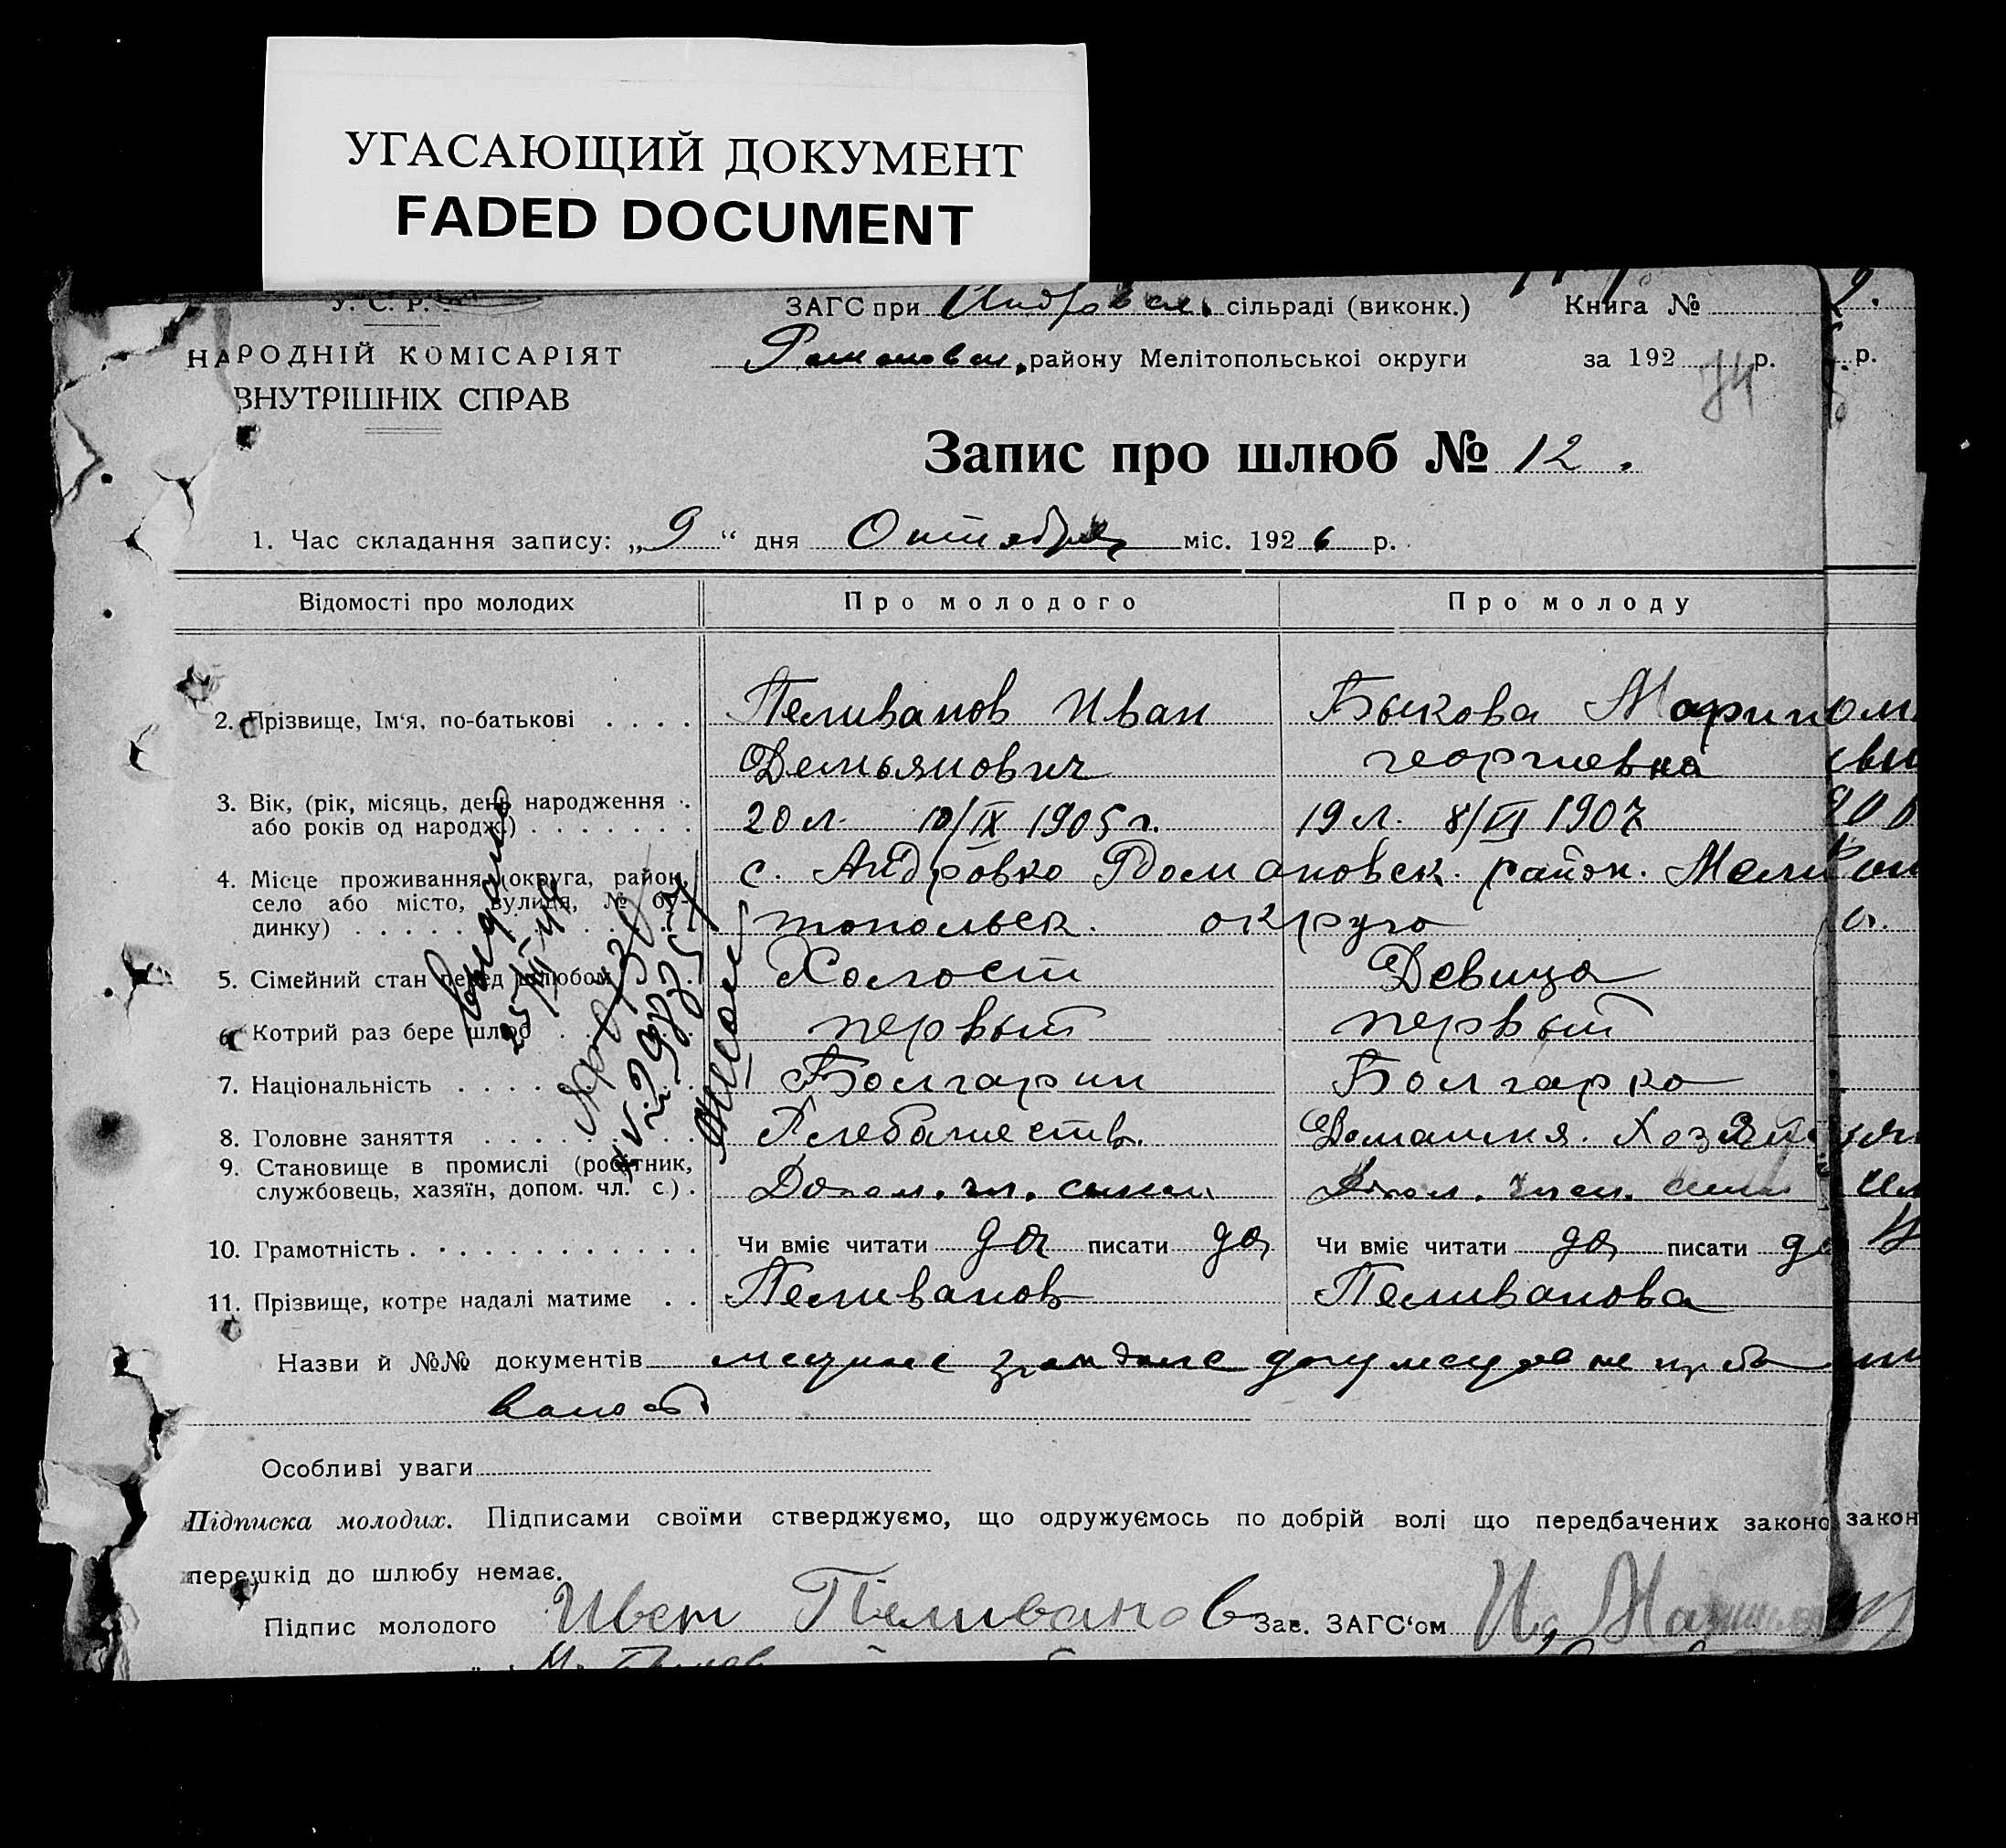 УГАСАЮЩИЙ ДОКУМЕНТ
FADED DOCUMENT
У. С. Р. Р.
ЗАГС при Андровск. сільраді (виконк.) Книга №
НАРОДНІЙ КОМІСАРІЯТ
Романовск. району Мелітопольської округи за 192 р.
ВНУТРІШНІХ СПРАВ
74
Запис про шлюб № 12.
1. Час складання запису: „9“ дня Октября міс. 1926 р.
Відомості про молодих Про молодого Про молоду
2. Прізвище, Ім‘я, по-батькові . . . . Пеливанов Иван Быкова Мария
Демьянович георгиевна
3. Вік, (рік, місяць, день народження
або років од народж.) . . . . . . . 20 л. 10/IX 1905 г. 19 л. 8/VI 1907
4. Місце проживання (округа, район, с. Андровка Романовск. район. Мели
село або місто, вулиця, № бу-
динку) топольск. округа
5. Сімейний стан перед шлюбом Холост Девица
6. Котрий раз бере шлюб первый первый
7. Національність Болгарин Болгарка
8. Головне заняття Хлебопашеств. Домашня. Хозяй
9. Становище в промислі (робітник,
службовець, хазяїн, допом. чл. с.) . Допом. чл. семьи Допом. член. семьи
10. Грамотність Чи вміє читати да писати да Чи вміє читати да писати да
11. Прізвище, котре надалі матиме . . Пеливанов Пеливанова
Назви й №№ документів местные граждане документа не требо
валось
Видано
25/III 48
Особливі уваги
Підписка молодих. Підписами своїми стверджуємо, що одружуємось по добрій волі що передбачених законо
перешкід до шлюбу немає.
Підпис молодого Иван Пеливанов Зав. ЗАГС‘ом И.